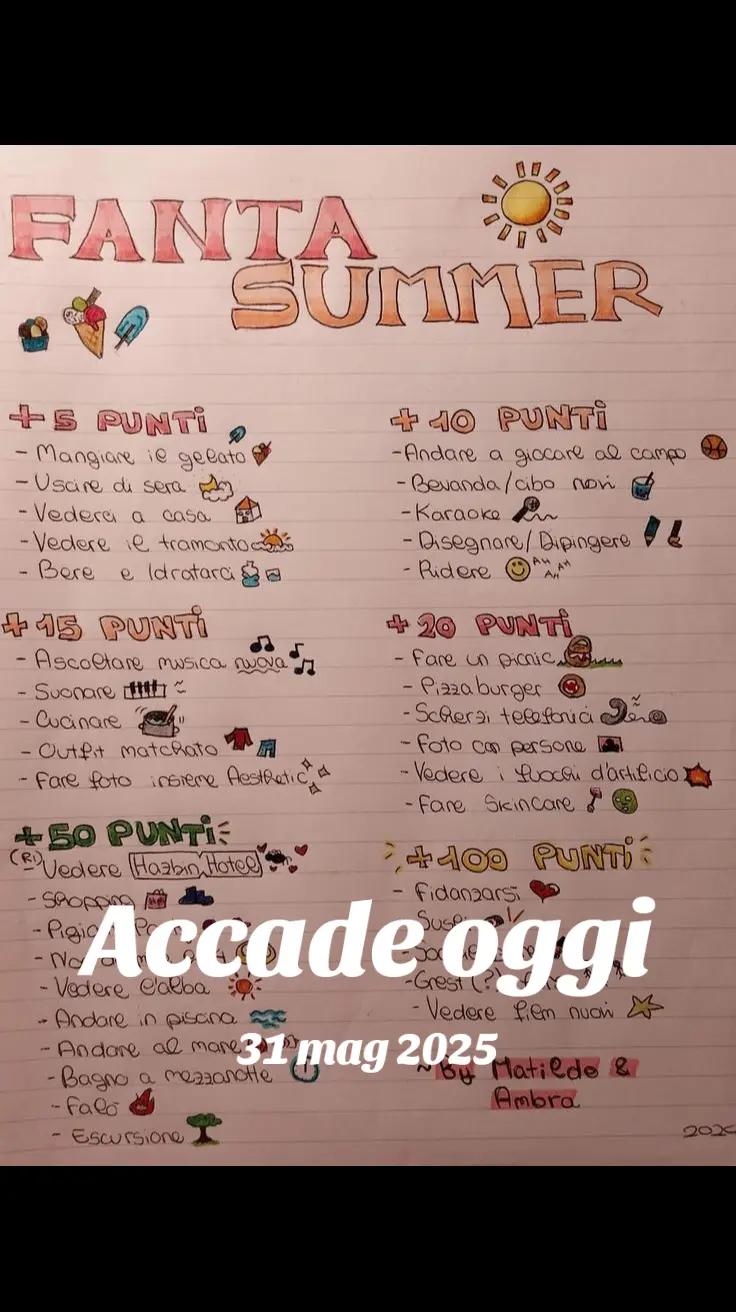 FANTA
SUMMER
+5 PUNTi
- Mangiare il gelato
- Uscire di sera
- Vederci a casa
- Vedere il tramonto
- Bere e Idratarci
+10 PUNTi
- Andare a giocare al campo
- Bevanda/cibo novi
- Karaoke
- Disegnare/Dipingere
- Ridere
AH AH AH
+15 PUNTi
- Ascoltare musica nuova
- Suonare
- Cucinare
- Outfit matchato
- Fare foto insieme Aesthetic
+20 PUNTi
- Fare un picnic
- Pizzaburger
- Scherzi telefonici
- Foto con persone
- Vedere i fuochi d'artificio
- Fare Skincare
+50 PUNTi
(Ri) Vedere Hazbin Hotel
- Shopping
- Vedere l'alba
- Andare in piscina
- Andare al mare
- Bagno a mezzanotte
- Falò
- Escursione
+100 PUNTi
- Fidanzarsi
- Grest (?)
- Vedere film nuovi
~ By Matilde &
Ambra
Accade oggi
31 mag 2025